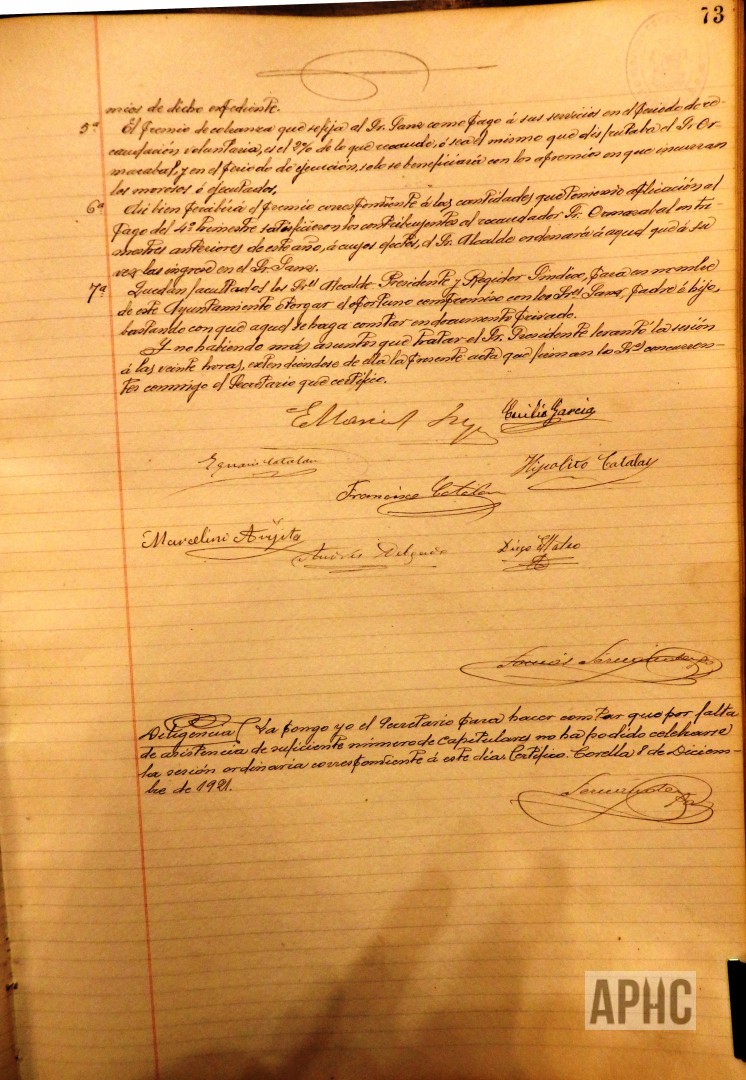 73
mios de dicho expediente.
5ª El premio de cobranza que se fija al Sr. Sanz como pago á sus servicios en el periodo de re-
caudación voluntaria, es el 2% de lo que recaude, ó sea el mismo que disfrutaba el Sr. Or-
mazabal, y en el periodo de ejecución, solo se beneficiará con los apremios en que incurran
los morosos ó ejecutados.
6ª Asi bien percibirá el premio correspondiente á las cantidades que teniendo aplicación al
pago del 4º trimestre satisficieron los contribuyentes al recaudador Sr. Ormazabal en tri-
mestres anteriores de este año, á cuyos efectos, el Sr. Alcalde ordenará á aquel que á su
vez las ingrese en el Sr. Sanz.
7ª Quedan facultados los Sres Alcalde Presidente y Regidor Síndico, para en nombre
de este Ayuntamiento otorgar el oportuno compromiso con los Sres Sanz, padre é hijo,
bastando con que aquel se haga constar en documento privado.
Y no habiendo más asuntos que tratar el Sr. Presidente levantó la sesión
á las veinte horas, extendiéndose de ella la presente acta que firman los Srs concurren-
tes conmigo el Secretario que certifico.
Emilio Garcia
Ignacio Catalan
Hipolito Catalan
Francisco Catalan
Marcelino Arigita
Andrés Delgado
Diego Mateo
Diligencia (La pongo yo el Secretario para hacer constar que por falta
de asistencia de suficiente número de capitulares no ha podido celebrarse
la sesión ordinaria correspondiente á este día. Certifico. Corella 8 de Diciem-
bre de 1921.
APHC